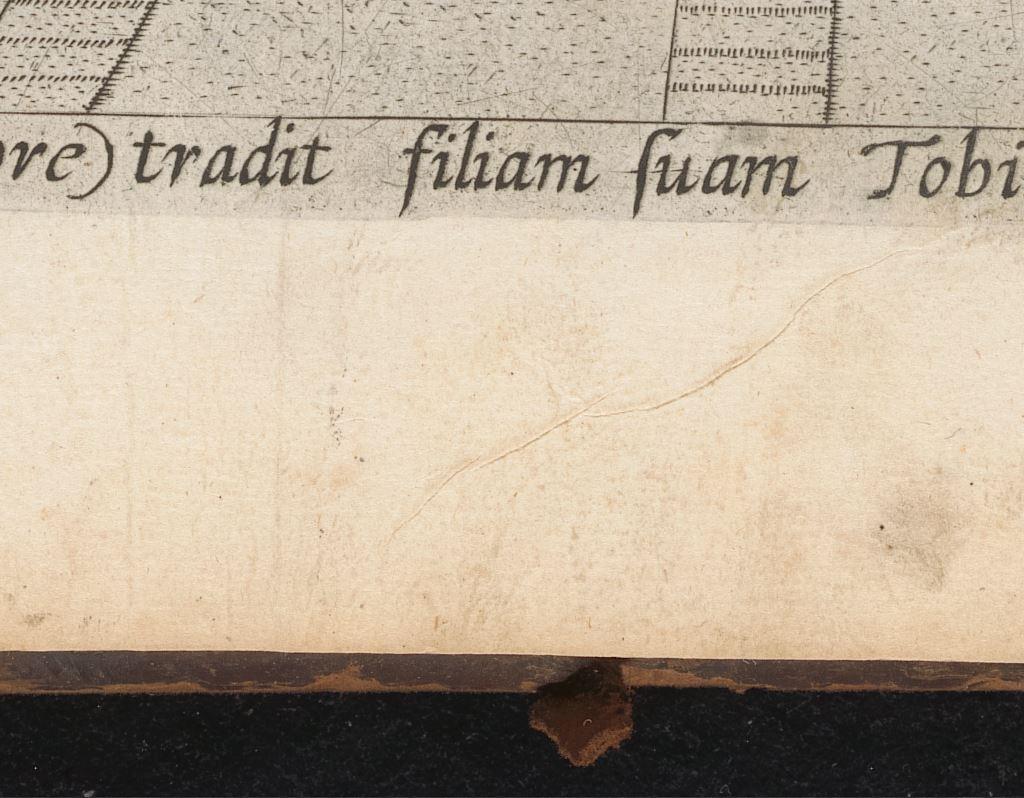 re) tradit filiam ſuam Tobi